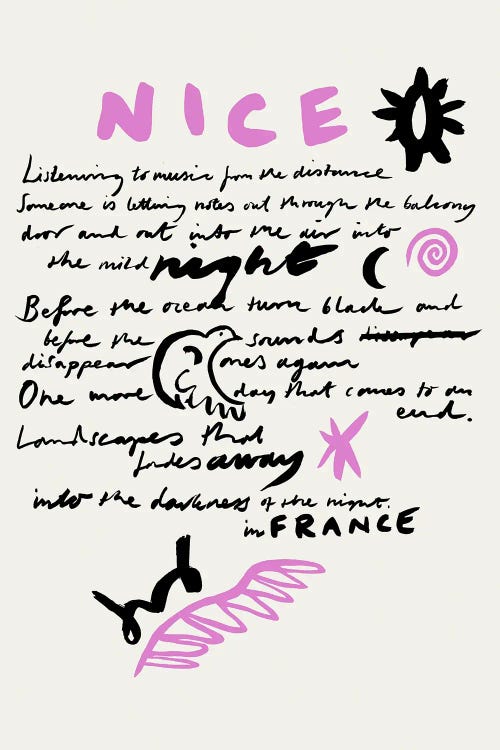 NICE
Listening to music from the distance
Someone is letting notes out through the balcony
door and out into the air into
the mild night
Before the ocean turn black and
before the sounds disappear
disappear ones again
One more day that comes to an
end.
Landscapes that
fades away
into the darkness of the night.
in FRANCE